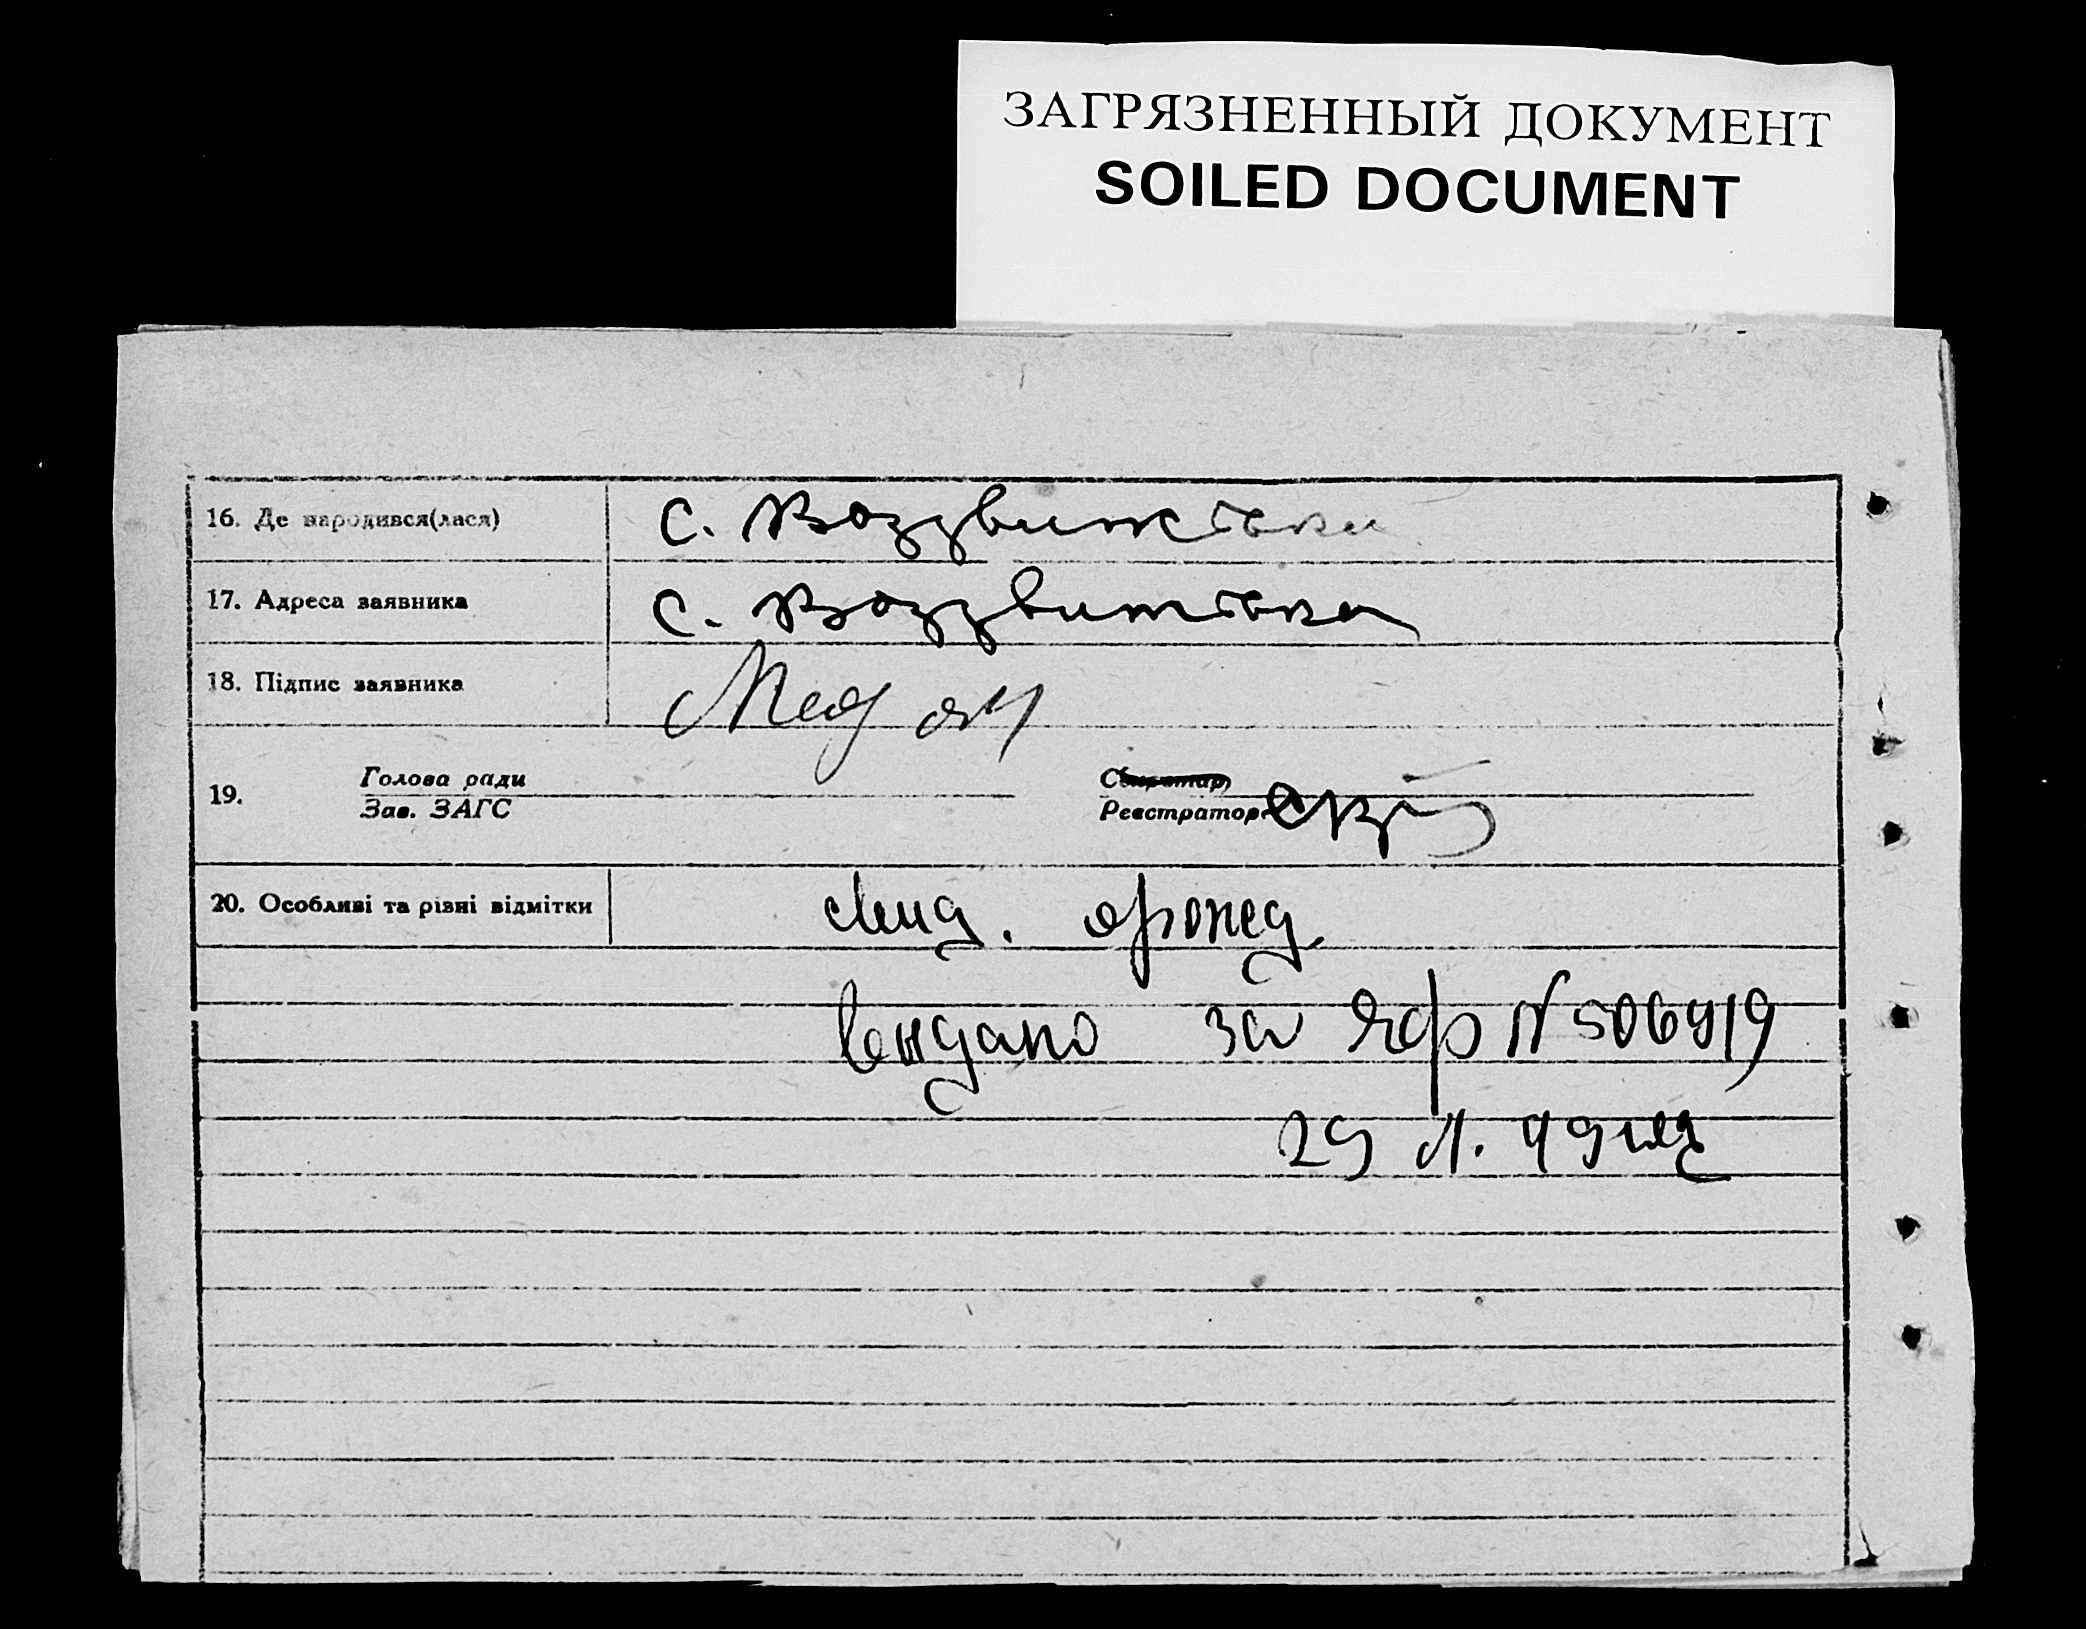 ЗАГРЯЗНЕННЫЙ ДОКУМЕНТ
SOILED DOCUMENT
16. Де народився(лася) с. Воздвижівка
17. Адреса заявника с. Воздвижівка
18. Підпис заявника
19. Голова ради Секретар
Зав. ЗАГС Реєстратор
20. Особливі та різні відмітки
видано за №506919